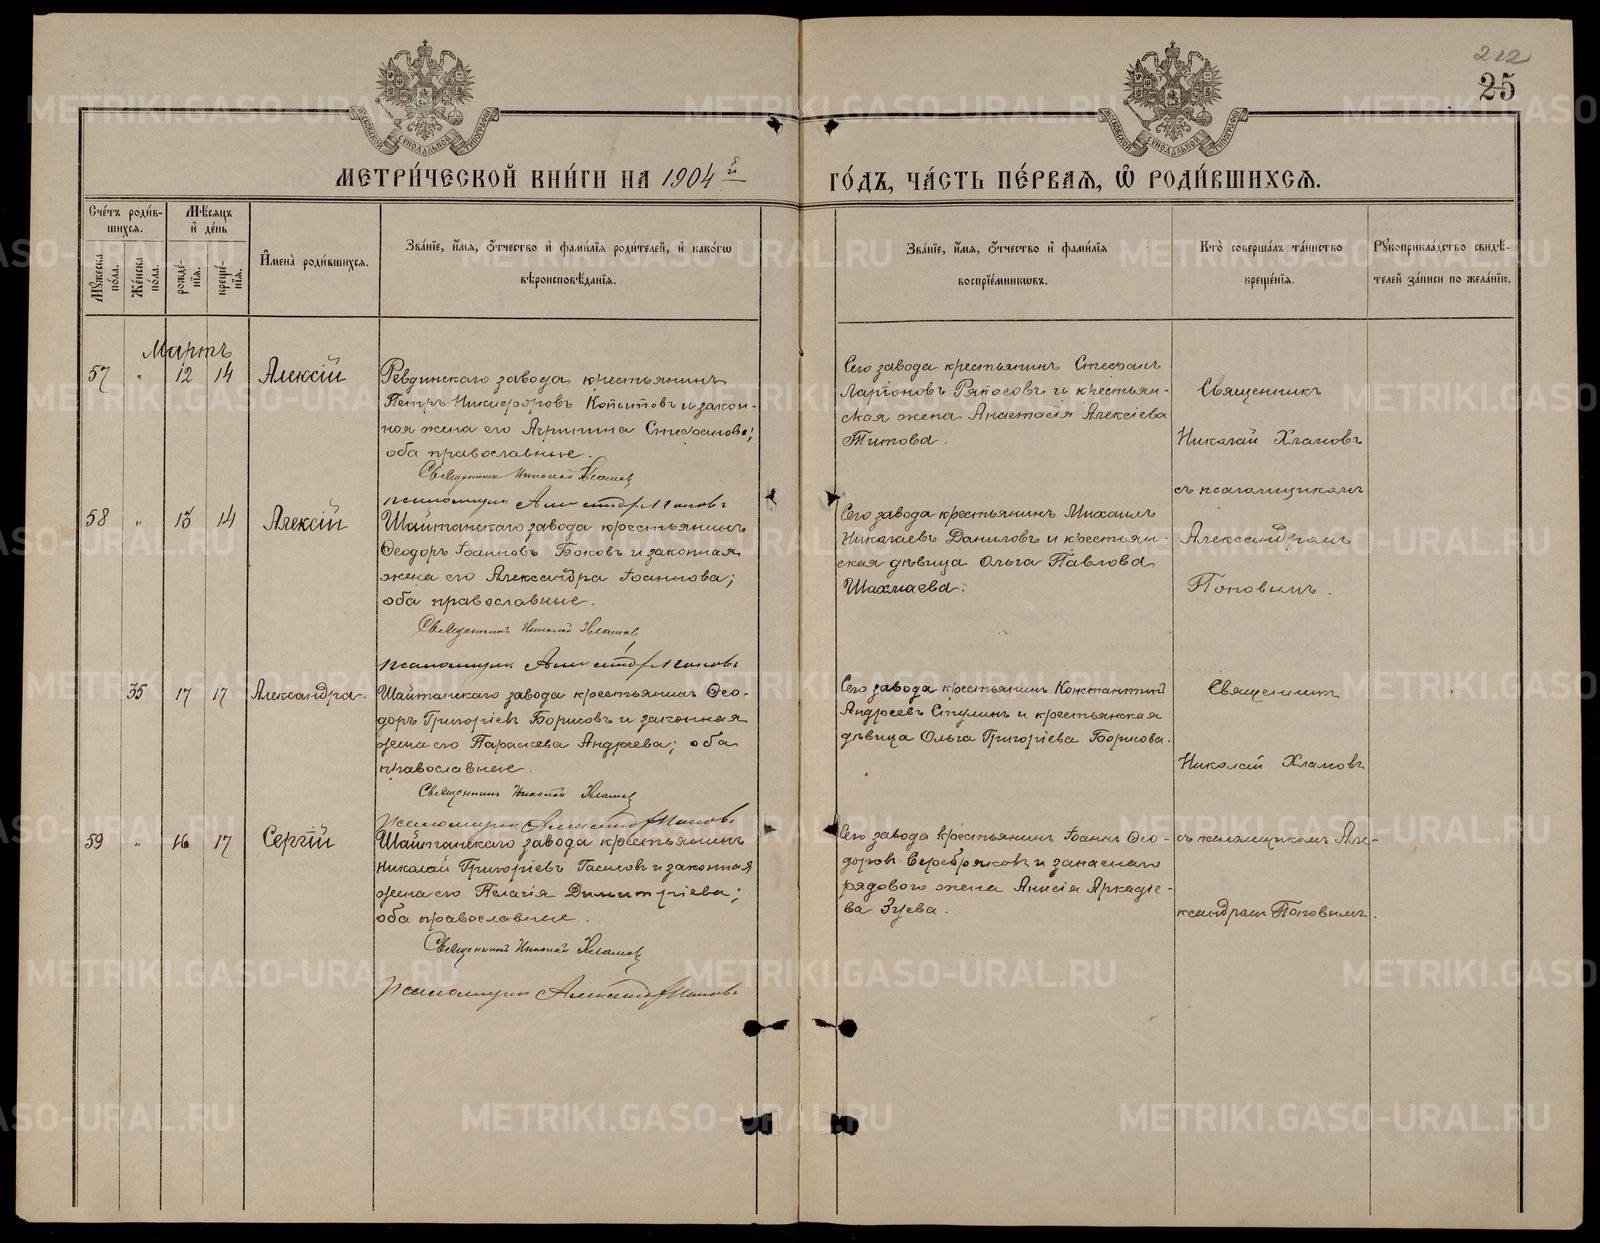 212
25
МЕТРИ́ЧЕСКОЙ КНИ́ГИ НА 1904 й
ГО́ДЪ, ЧА́СТЬ ПЕ́РВАѦ, Ѡ РОДИ́ВШИХСѦ.
Сче́тъ роди́в-
шихся.
Мѣ́сяцъ
и҆ де́нь
Му́жеска по́ла.
Же́нска по́ла.
рожде́-
нїя.
креще́-
нїя.
И҆мена̀ роди́вшихся.
Зва́нїе, и҆́мя, ѻ҆́тчество и҆ фами́лїя роди́телей, и҆ како́гѡ
вѣроисповѣ́данїя.
Зва́нїе, и҆́мя, ѻ҆́тчество и҆ фами́лїя
воспрїе́мникѡвъ.
Кто̀ соверша́лъ та́инство
креще́нїя.
Рꙋкоприкла́дство свидѣ́-
телей за́писи по жела́нїю.
Мартъ
57 " 12 14 Алексій
Ревдинскаго завода крестьянинъ
Петръ Никифоровъ Копытовъ и закон-
ная жена его Агрипина Стефанова;
оба православные.
Священникъ Николай Хламов
псаломщик Александр Поповъ
Сего завода крестьянинъ Стефанъ
Ларіоновъ Ряпосовъ и крестьян-
ская жена Анастасія Алексіева
Титова.
Священникъ
Николай Хламовъ
съ псаломщикомъ
Александромъ
Поповымъ.
58 " 13 14 Алексій
Шайтанскаго завода крестьянинъ
Ѳеодоръ Іоанновъ Боковъ и законная
жена его Александра Іоаннова;
оба православные.
Священникъ Николай Хламов
псаломщик Александр Поповъ
Сего завода крестьянинъ Михаилъ
Николаевъ Даниловъ и крестьян-
ская дѣвица Ольга Павлова
Шахмаева.
35 17 17 Александра.
Шайтанскаго завода крестьянинъ Ѳео-
доръ Григоріевъ Борисовъ и законная
жена его Параскева Андреева; оба
православные.
Священникъ Николай Хламов
Псаломщик Александр Поповъ
Сего завода крестьянинъ Константинъ
Андреевъ Ступинъ и крестьянская
дѣвица Ольга Григоріева Борисова.
Священникъ
Николай Хламовъ
съ псаломщикомъ Але-
ксандромъ Поповымъ.
59 " 16 17 Сергій
Шайтанскаго завода крестьянинъ
Николай Григоріевъ Гасиловъ и законная
жена его Пелагія Димитріева;
оба православные.
Священникъ Николай Хламов
Псаломщик Александр Поповъ
Сего завода крестьянинъ Іоаннъ Ѳео-
доровъ Серебряковъ и запаснаго
рядового жена Анисія Аркадіе-
ва Зуева.
METRIKI.GASO-URAL.RU